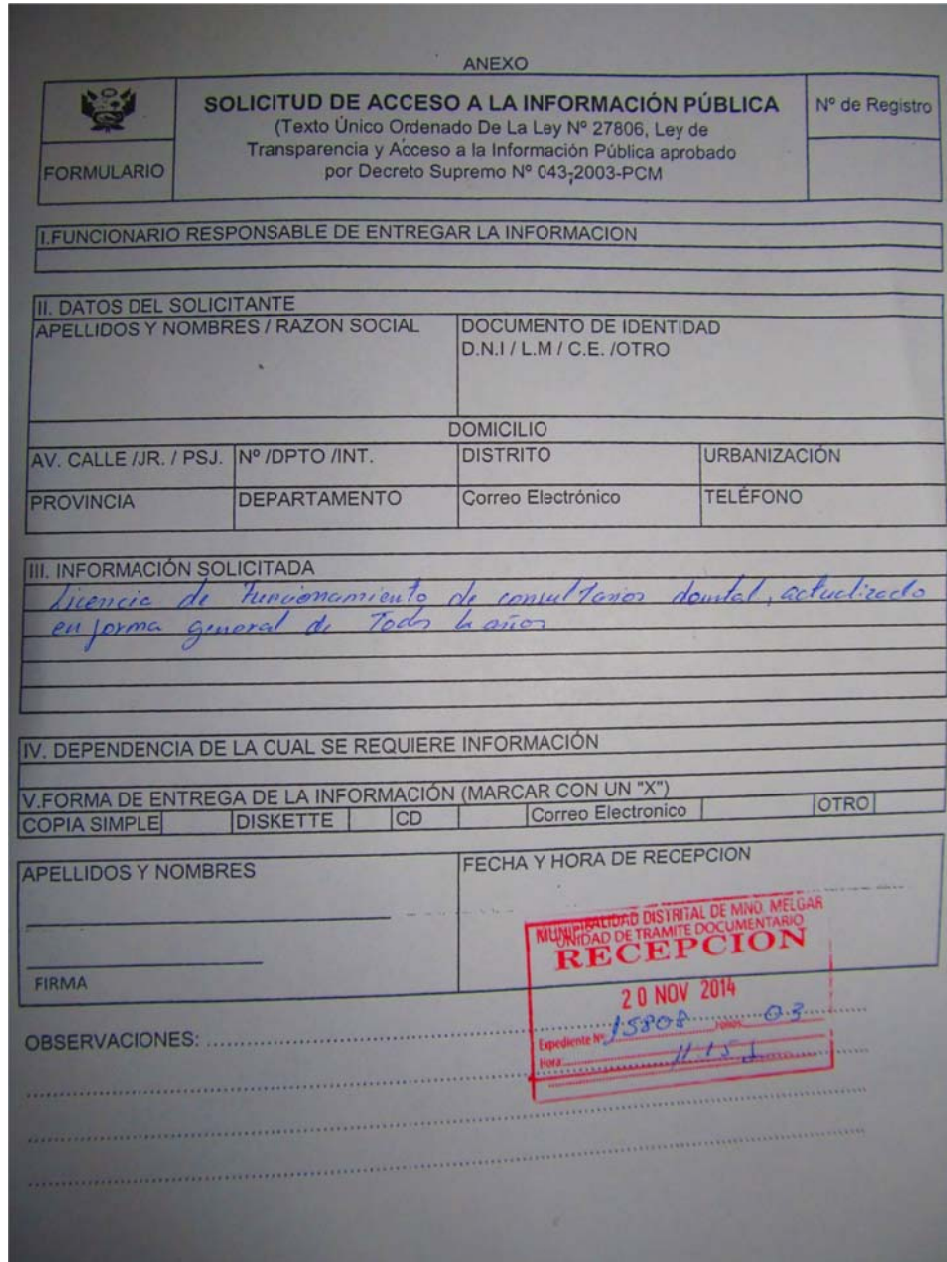 ANEXO
SOLICITUD DE ACCESO A LA INFORMACIÓN PÚBLICA
(Texto Único Ordenado De La Ley Nº 27806, Ley de
Transparencia y Acceso a la Información Pública aprobado
por Decreto Supremo Nº 043-2003-PCM
Nº de Registro
FORMULARIO
I.FUNCIONARIO RESPONSABLE DE ENTREGAR LA INFORMACION
II. DATOS DEL SOLICITANTE
APELLIDOS Y NOMBRES / RAZON SOCIAL
DOCUMENTO DE IDENTIDAD
D.N.I / L.M / C.E. /OTRO
DOMICILIO
AV. CALLE /JR. / PSJ. Nº /DPTO /INT. DISTRITO URBANIZACIÓN
PROVINCIA DEPARTAMENTO Correo Electrónico TELÉFONO
III. INFORMACIÓN SOLICITADA
Licencia de Funcionamiento de consultorios dental, actualizado
en forma general de Todos los años
IV. DEPENDENCIA DE LA CUAL SE REQUIERE INFORMACIÓN
V.FORMA DE ENTREGA DE LA INFORMACIÓN (MARCAR CON UN "X")
COPIA SIMPLE DISKETTE CD Correo Electronico OTRO
APELLIDOS Y NOMBRES
FECHA Y HORA DE RECEPCION
FIRMA
MUNICIPALIDAD DISTRITAL DE MNO. MELGAR
UNIDAD DE TRAMITE DOCUMENTARIO
RECEPCION
20 NOV 2014
Expediente Nº 15808 Folios 03
Hora 11:15
OBSERVACIONES: